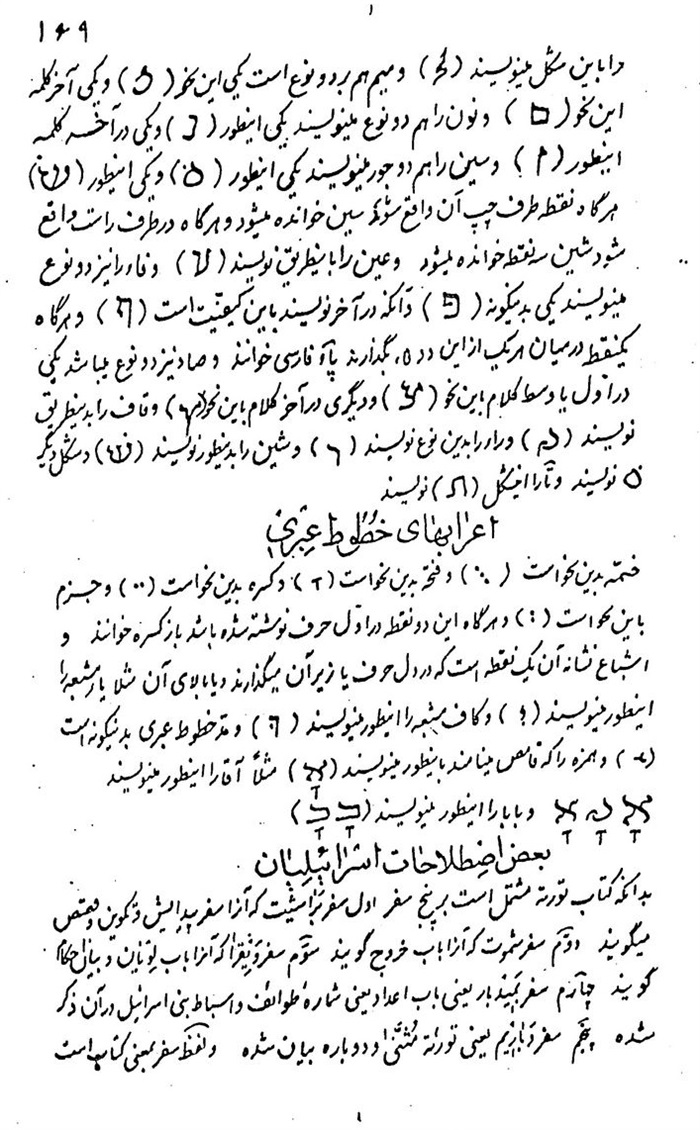 ۱۶۹
را باین شکل مینویسند (ל) و میم هم بر دو نوع است یکی این نحو (מ) و یکی آخر کلمه
این نحو (ם) و نون را هم دو نوع مینویسند یکی اینطور (נ) و یکی در آخر کلمه
اینطور (ן) و سین را هم دو جور مینویسند یکی اینطور (ס) و یکی اینطور (שׂ)
هرگاه نقطه طرف چپ آن واقع شود سین خوانده میشود و هرگاه در طرف راست واقع
شود شین سه نقطه خوانده میشود و عین را باینطریق نویسند (ע) و فاء را نیز دو نوع
مینویسند یکی بدینگونه (פ) و آنکه در آخر نویسند باین کیفیت است (ף) و هرگاه
یکنقطه در میان هر یک از این دو بگذارند پاء فارسی خوانند و صاد نیز دو نوع میباشد یکی
در اول یا وسط کلام باین نحو (צ) و دیگری در آخر کلام باین نحو (ץ) و قاف را بدینطریق
نویسند (ק) و راء را بدین نوع نویسند (ר) و شین را بدینطور نویسند (שׁ) و شکل دیگر
نویسند و تا را اینشکل (ת) نویسند
اعرابهای خطوط عبری
ضمه بدین نحو است و فتحه بدین نحو است و کسره بدین نحو است و جزم
باین نحو است (:) و هرگاه این دو نقطه در اول حرف نوشته شده باشد باز کسره خوانند و
اشباع نشانه آن یک نقطه است که در دل حرف یا زیر آن میگذارند و یا بالای آن مثلا یاء مشبعه را
اینطور مینویسند و کاف مشبعه را اینطور مینویسند و مد خطوط عبری بدینگونه است
و همزه را که قامص مینامند باینطور مینویسند (אָ) مثلاً آقا را اینطور مینویسند
אָ קָ אָ و بابا را اینطور مینویسند (בָּבָּ)
بعض اصطلاحات اسرائیلیان
بدانکه کتاب توریة مشتمل است بر پنج سفر اول سفر براشیت که آنرا سفر پیدایش و تکوین و
میگویند دوم سفر شموت که آنرا باب خروج گویند سوم سفر ویقرا که آنرا باب لویان و بیان احکام
گویند چهارم سفر بمیدبار یعنی باب اعداد یعنی شماره طوائف و اسباط بنی اسرائیل در آن ذکر
شده پنجم سفر دبازیم یعنی توریة مثنی و دوباره بیان شده و لفظ سفر بمعنی کتاب است